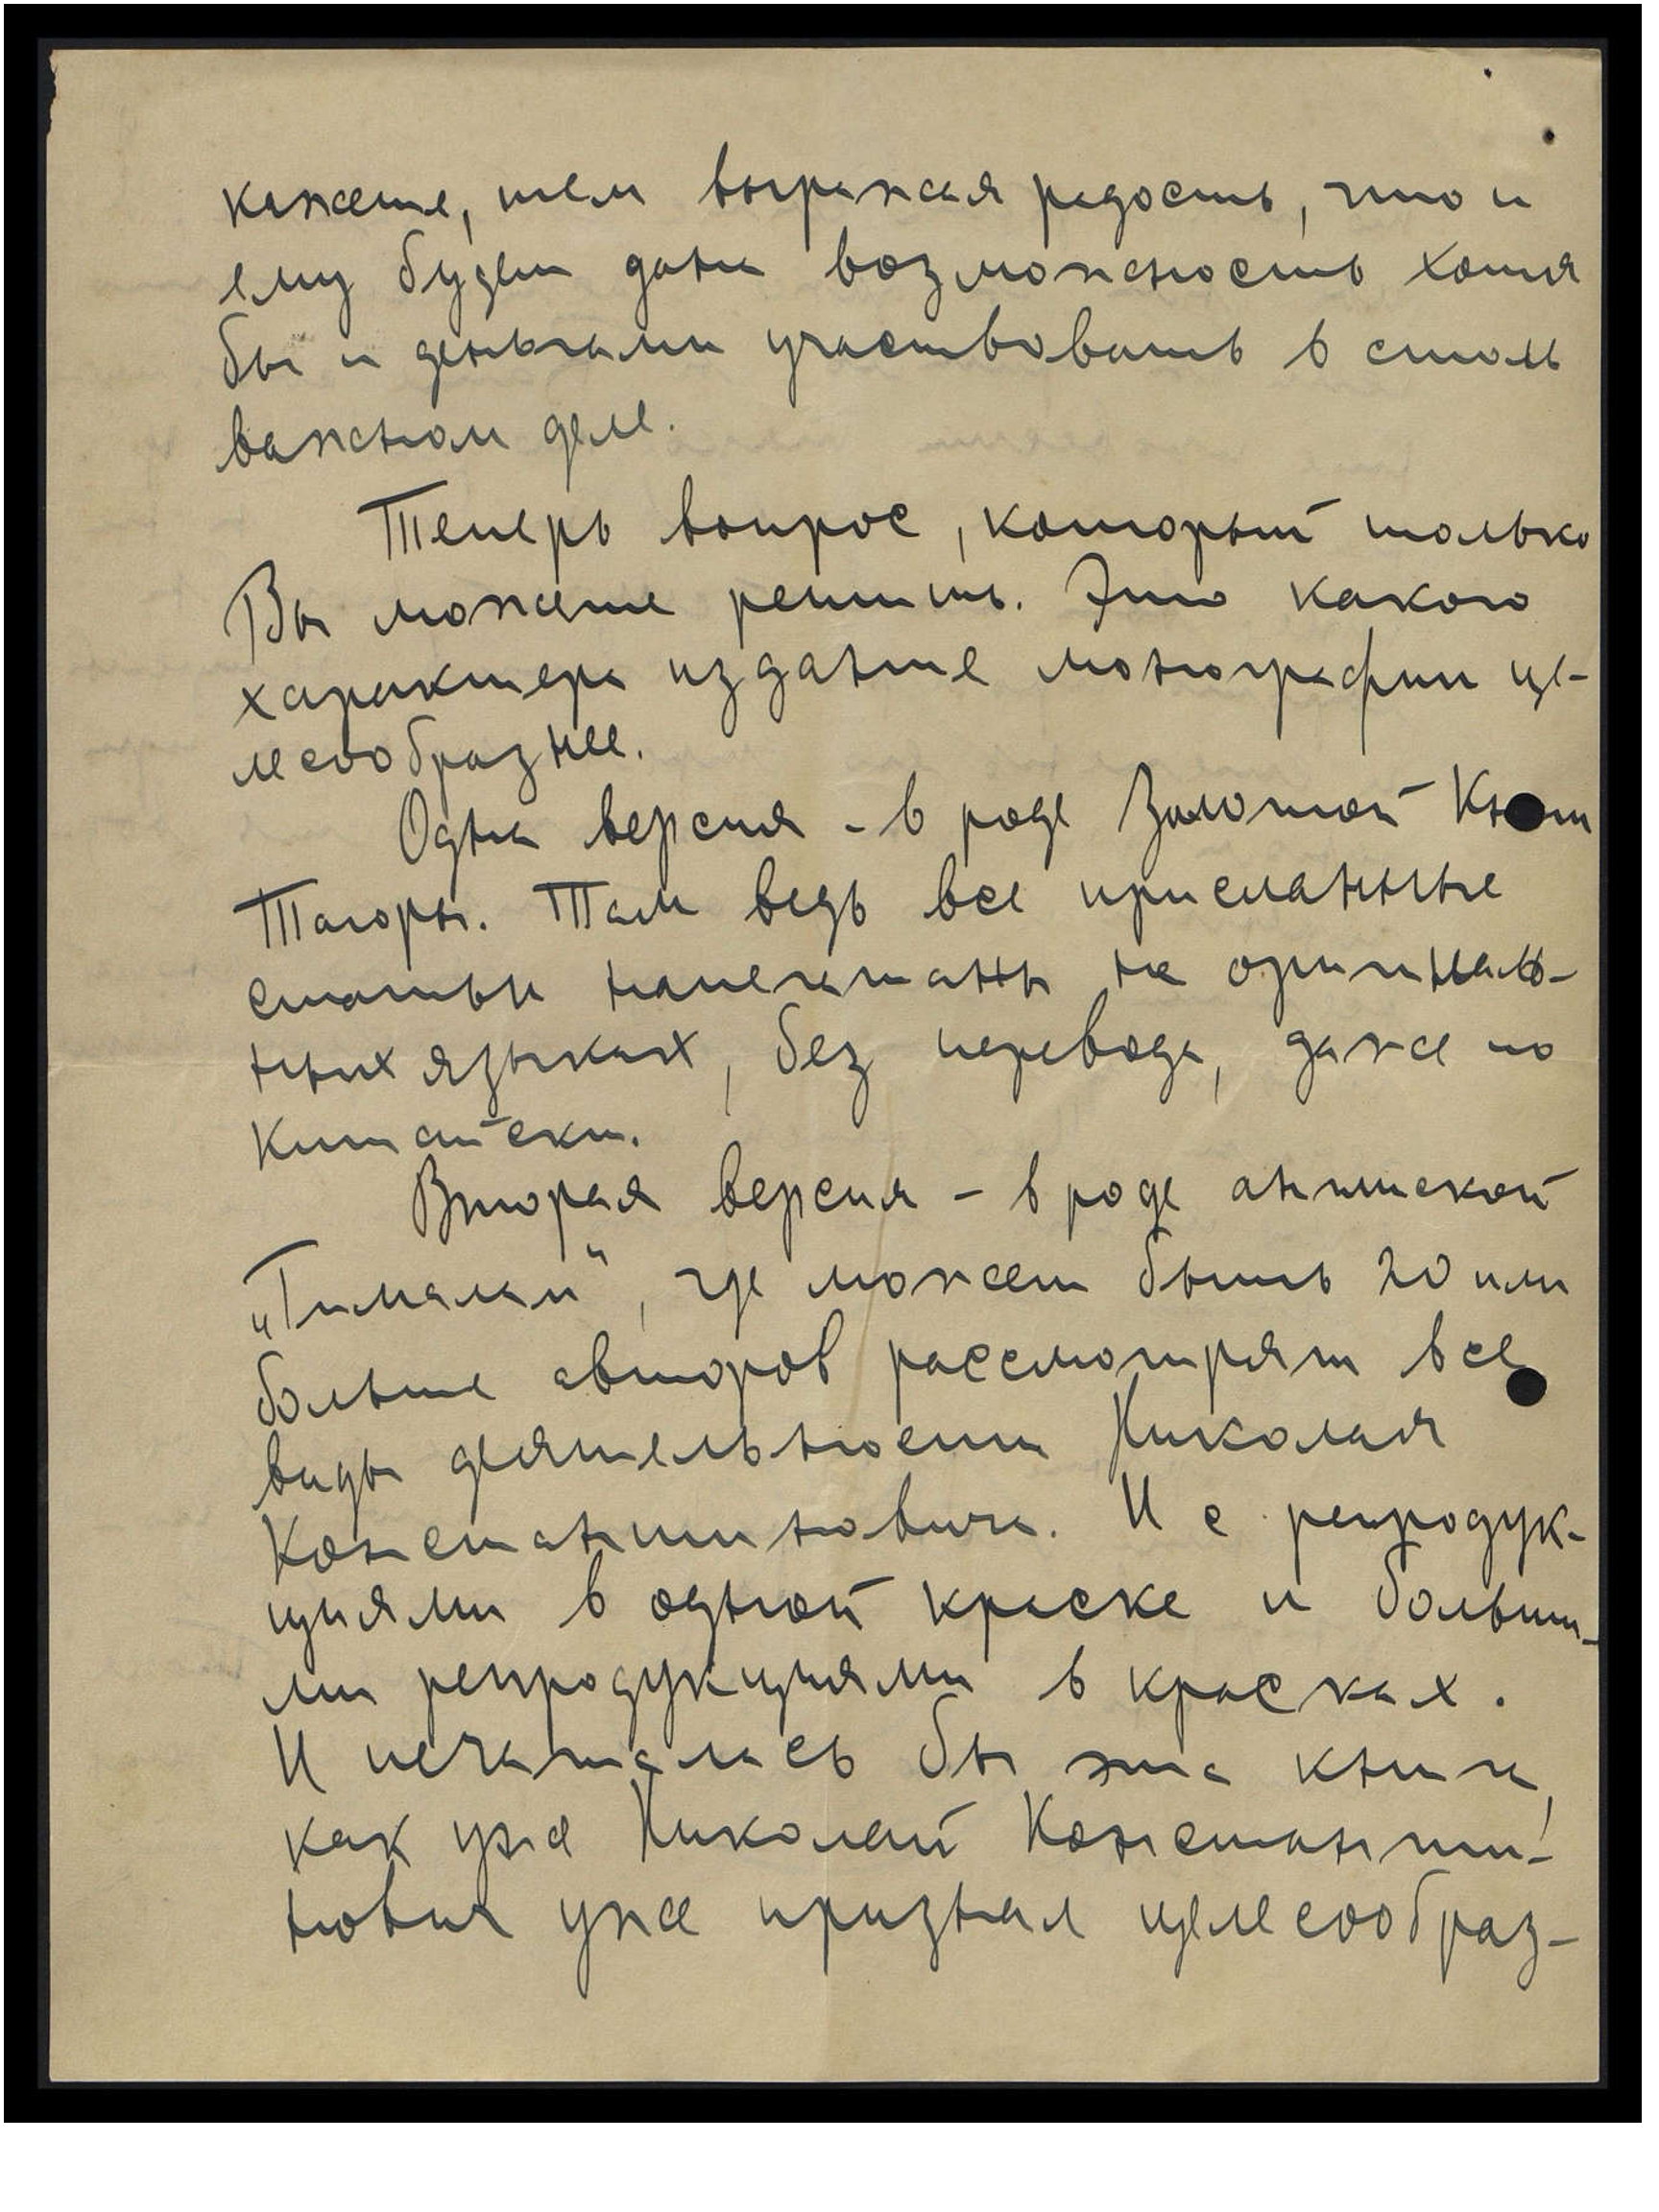 кажете, тем выражая радость, что и
ему будет дана возможность хотя
бы и деньгами участвовать в столь
важном деле.
Теперь вопрос, который только
Вы можете решить. Это какого
характера издание монографии це-
лесообразнее.
Одна версия - в роде Золотой
Тагора. Там ведь все присланные
статьи напечатаны на оригиналь-
ных языках, без перевода, даже по
китайски.
Вторая версия - в роде английской
„Гималаи“, где может быть 20 или
больше авторов рассмотрят все
виды деятельности Николая
Константиновича. И с репродук-
циями в одной краске и больши-
ми репродукциями в красках.
И печаталась бы эта книга,
как уже Николай Константи-
нович уже признал целесообраз-